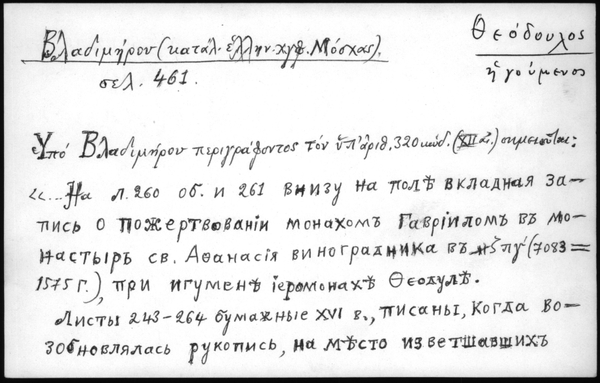 Βλαδιμήρου (κατάλ. ἑλλην. χγφ. Μόσχας),
σελ. 461.
Θεόδουλος
ἡγούμενος
Ὑπό Βλαδιμήρου περιγράφοντος τόν ὑπ' ἀριθ. 320 κώδ. (XII αἰ.) σημειοῦται:
«... На л. 260 об. и 261 внизу на полѣ вкладная за-
пись о пожертвованіи монахомъ Гавріиломъ въ мо-
настырь св. Аѳанасія виноградника въ ҂ζπγ' (7083 =
1575 г.), при игуменѣ іеромонахѣ Θеодулѣ.
Листы 243-264 бумажные XVI в., писаны, когда во-
зобновлялась рукопись, на мѣсто изветшавшихъ